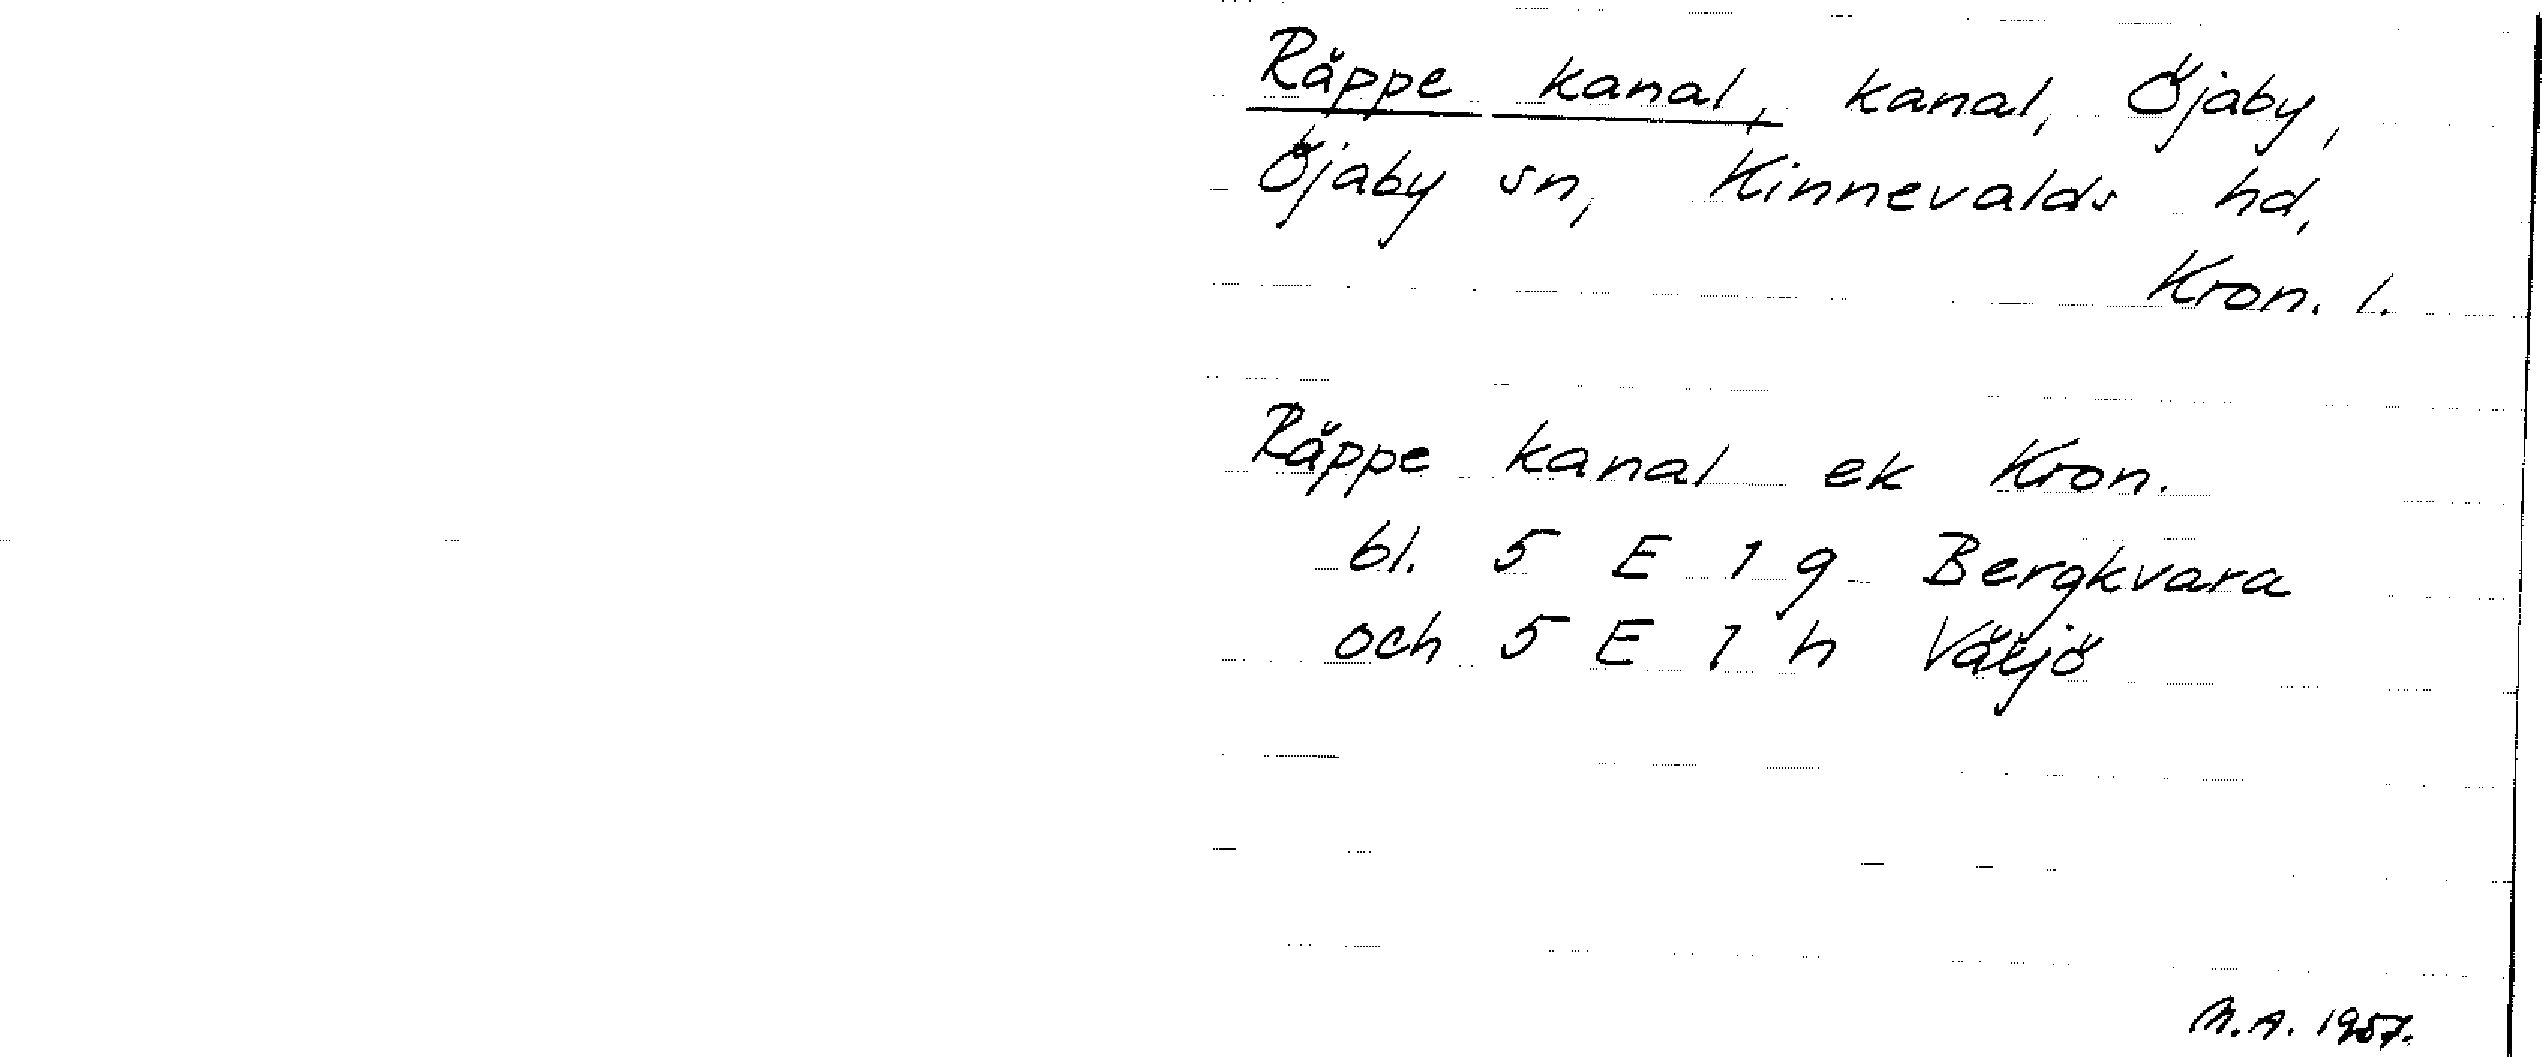 Räppe kanal, kanal, Öjaby,
Öjaby sn, Kinnevalds hd,
Kron. l.
Räppe kanal ek Kron.
bl. 5 E 1 g Bergkvara
och 5 E 1 h Växjö
M.A. 1957.